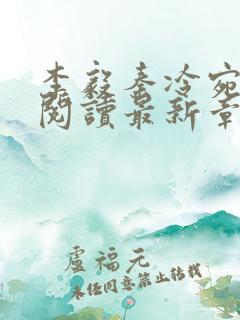 李毅秦冷宛
閱讀最新章
盧福元
未经同意禁止转载